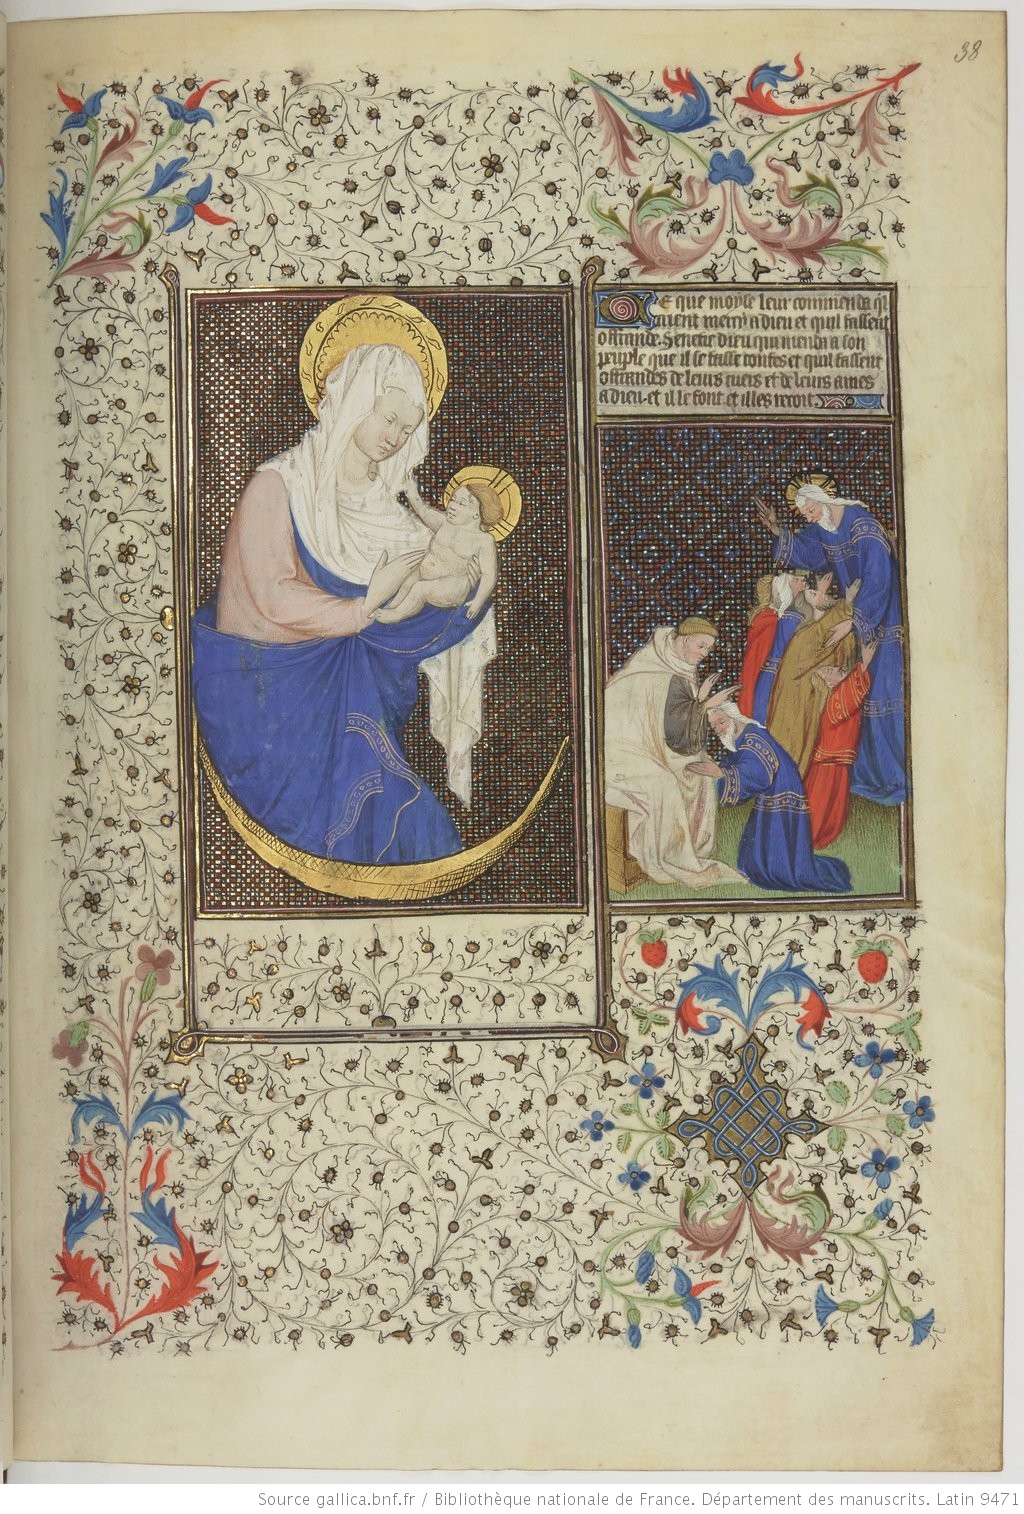 38
Ce que moyse leur commenda qͥ
aient mercy a dieu et quil fassent
offrande. Senefie dieu qui menda a son
peuple que il se fasse confes et quil fassent
offrandes de leurs cuers et de leurs ames
a dieu. et il le font. et il les recoit.
Source gallica.bnf.fr / Bibliothèque nationale de France. Département des manuscrits. Latin 9471